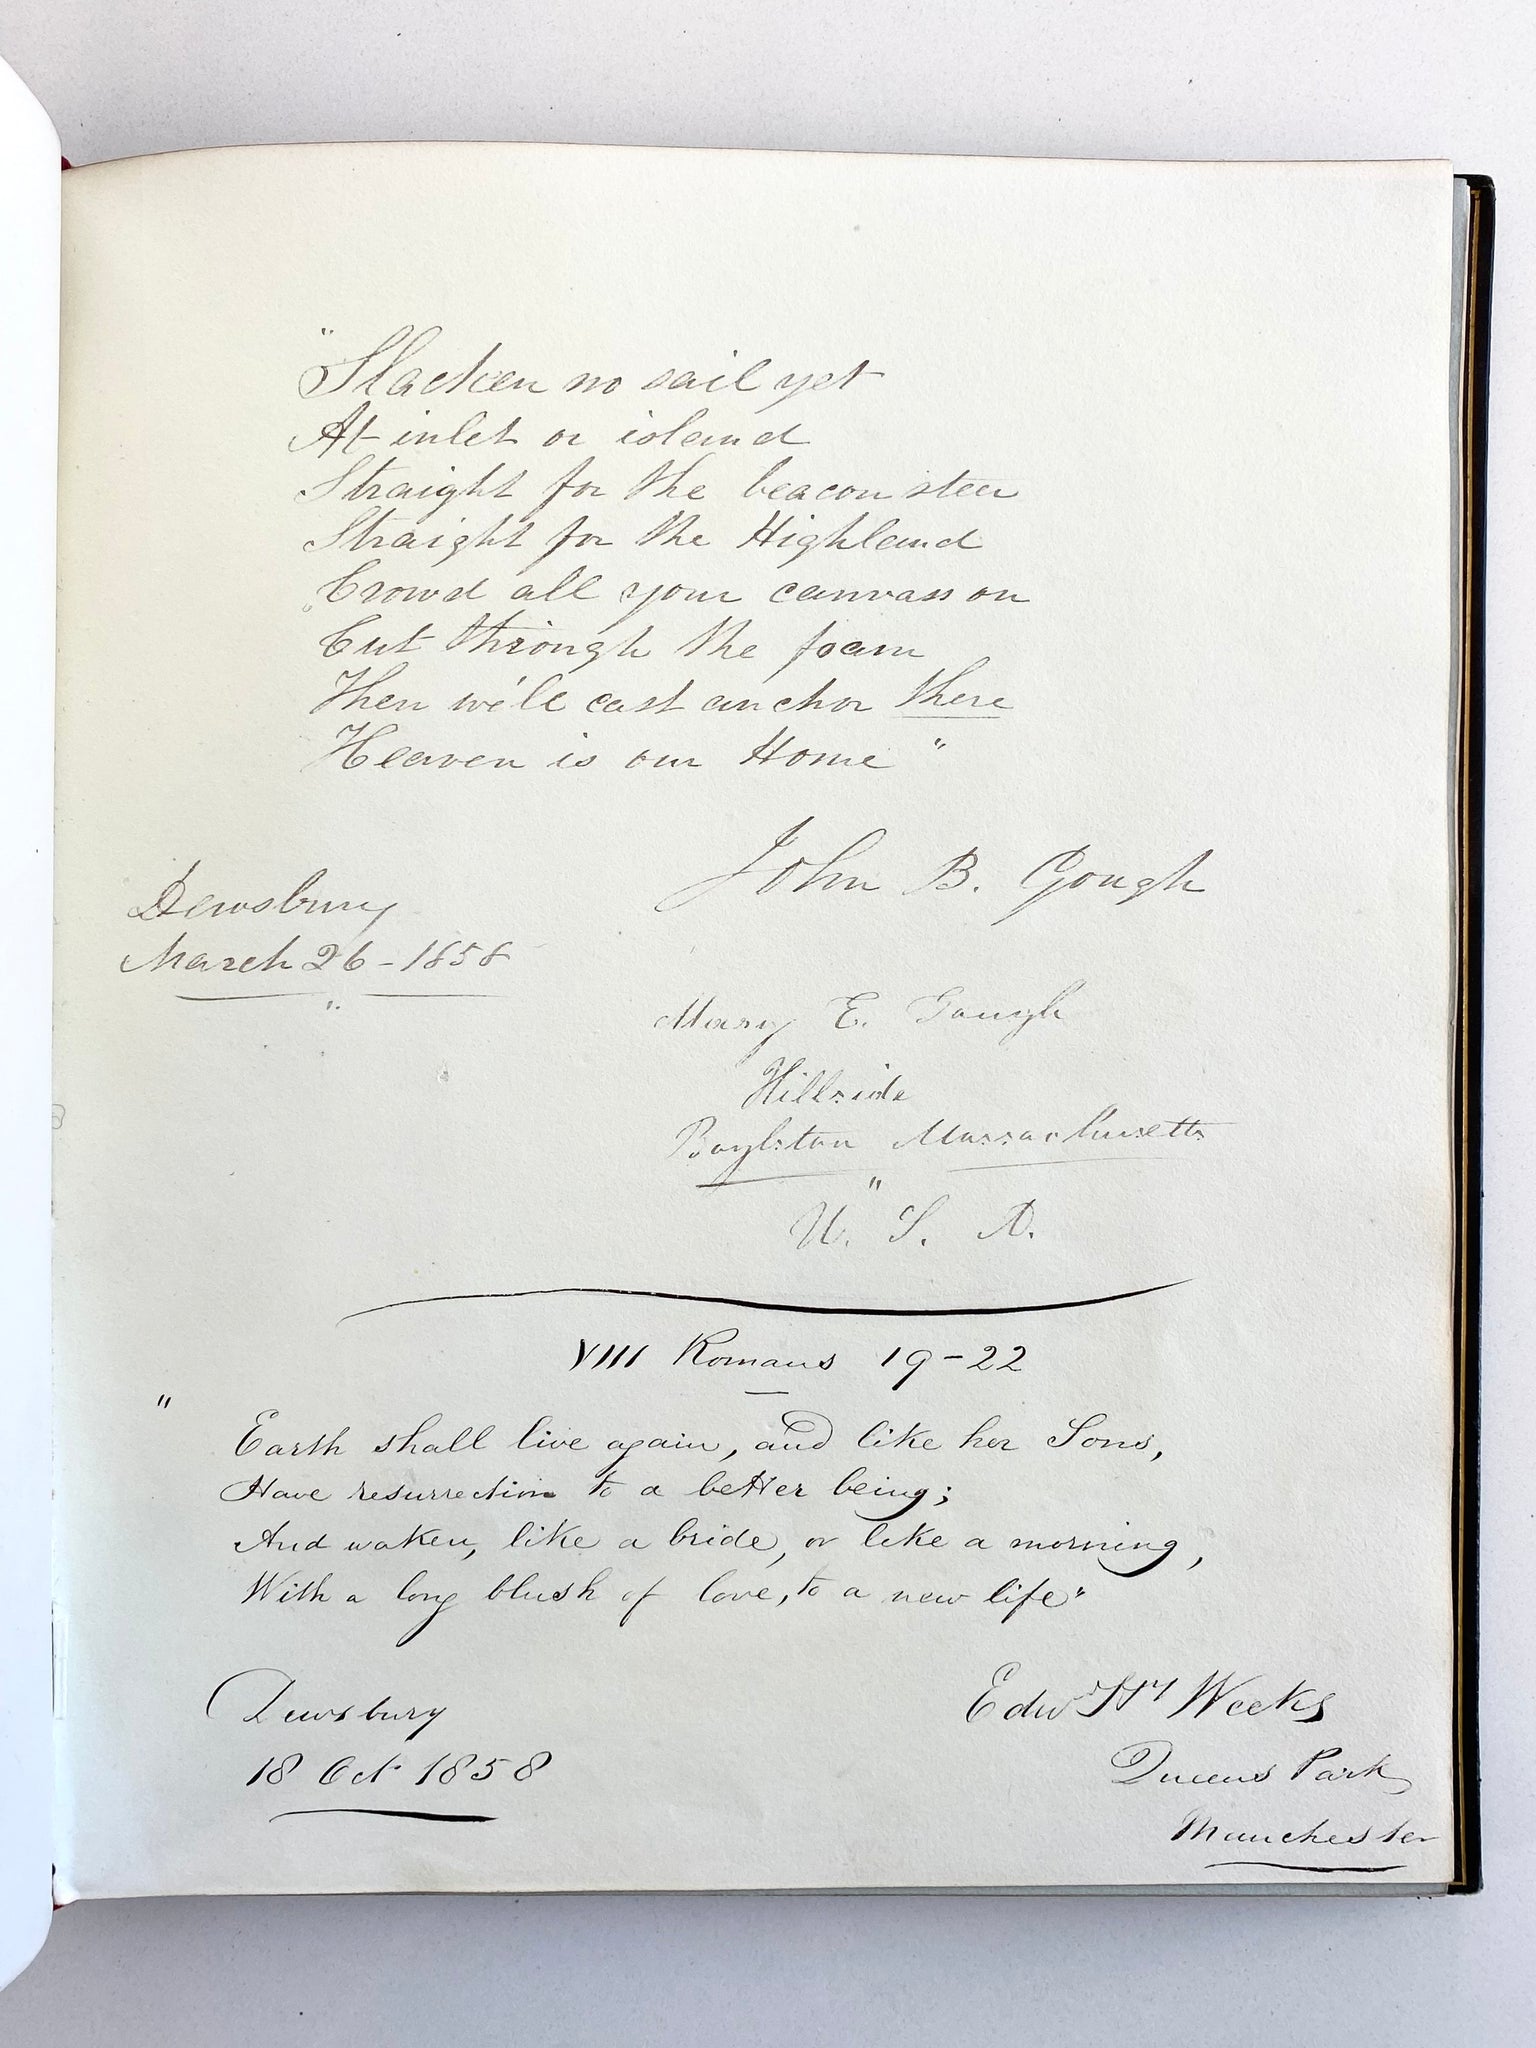 "Slacken no sail yet
At inlet or island
Straight for the beacon steer
Straight for the Highland
Crowd all your canvass on
Cut through the foam
Then we'll cast anchor there
Heaven is our Home"
John B. Gough
Dewsbury
March 26 - 1858
Mary E. Gough
Hillside
Boylston Massachusetts
U. S. A.
VIII Romans 19-22
"Earth shall live again, and like her Sons,
Have resurrection to a better being;
And waken, like a bride, or like a morning,
With a long blush of love, to a new life"
Dewsbury
18 Oct 1858
Edwd Hy Weeks
Queens Park
Manchester